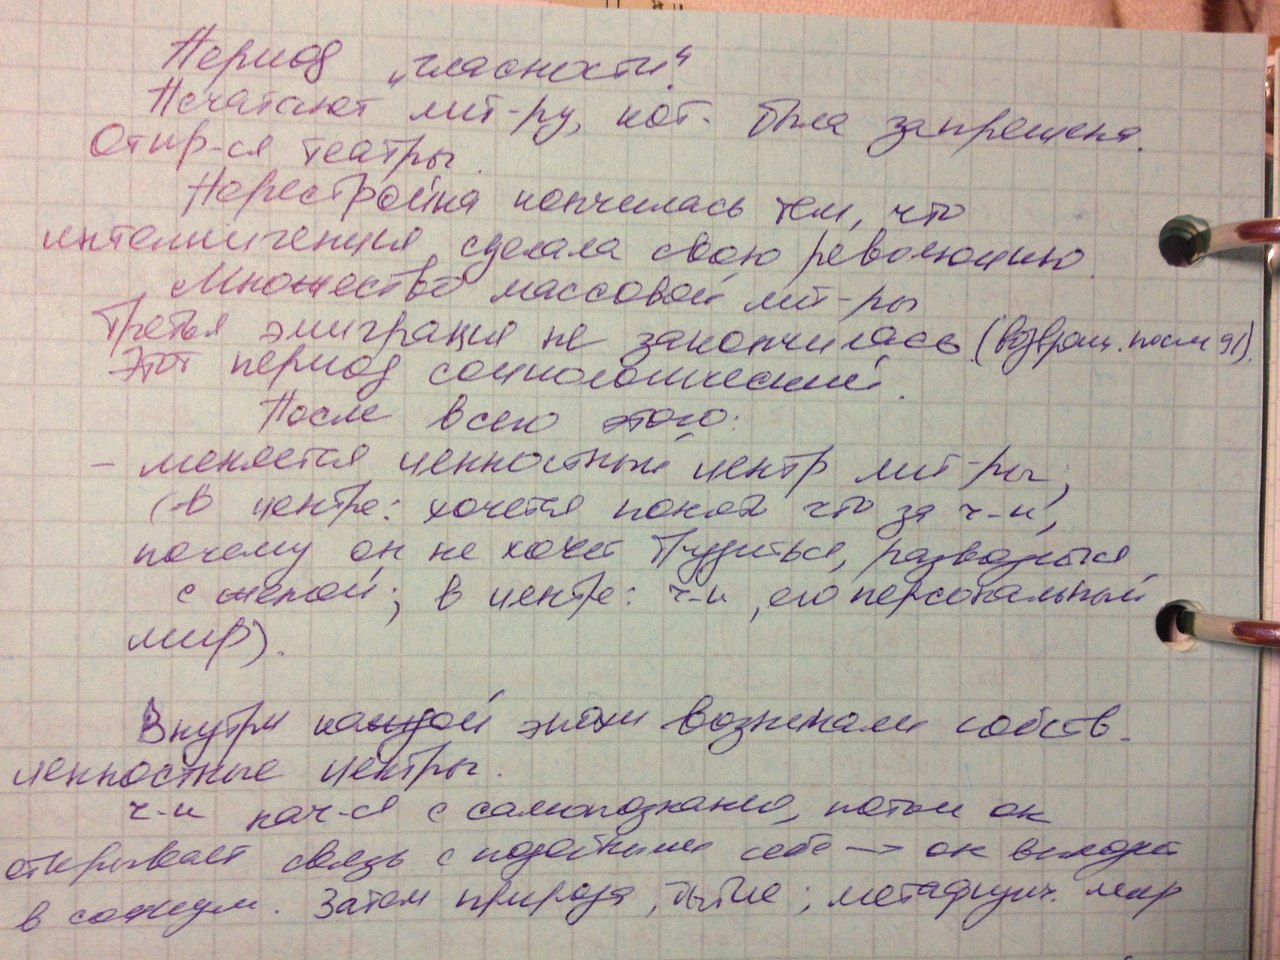 Период „гласности“
Печатают лит-ру, кот. была запрещена.
Откр-ся театры.
Перестройка кончилась тем, что
интеллигенция сделала свою революцию.
Множество массовой лит-ры
Третья эмиграция не закончилась (возвращ. после 91).
Этот период социологический.
После всего этого:
– меняется ценностный центр лит-ры;
(в центре: хочется понять что за ч-к,
почему он не хочет трудиться, разводиться
с женой; в центре: ч-к, его персональный
мир).
Внутри каждой эпохи возникали собств.
ценностные центры.
ч-к нач-ся с самопознания, потом он
открывает связь с подобными себе → он выходит
в социум. Затем природа, бытие; метафизич. мир